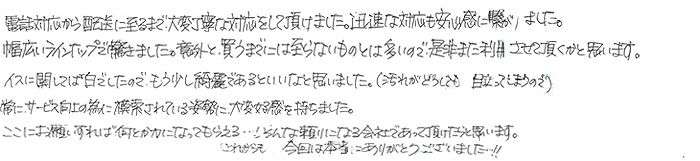 電話対応から配送に至るまで大変丁寧な対応をして頂けました。迅速な対応も安心感に繋がりました。
幅広いラインナップで驚きました。意外と、買うまでには至らないものとは多いので、是非また利用させて頂くかと思います。
イスに関しては白でしたので、もう少し綺麗であるといいなと思いました。(汚れがどうしても目立ってしまうので)
常にサービス向上の為に模索されている姿勢に、大変好感を持ちました。
ここにお願いすれば何とかかになってもらえる…!そんな頼りになる会社であって頂けたらと思います。
これからも 今回は本当にありがとうございました…!!